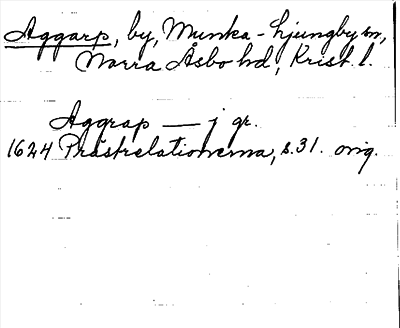 Aggarp, by, Munka-Ljungby sn,
Norra Åsbo hd, Krist. l.
Aggrap — j gr.
1624 Prästrelationerna, s. 31. orig.